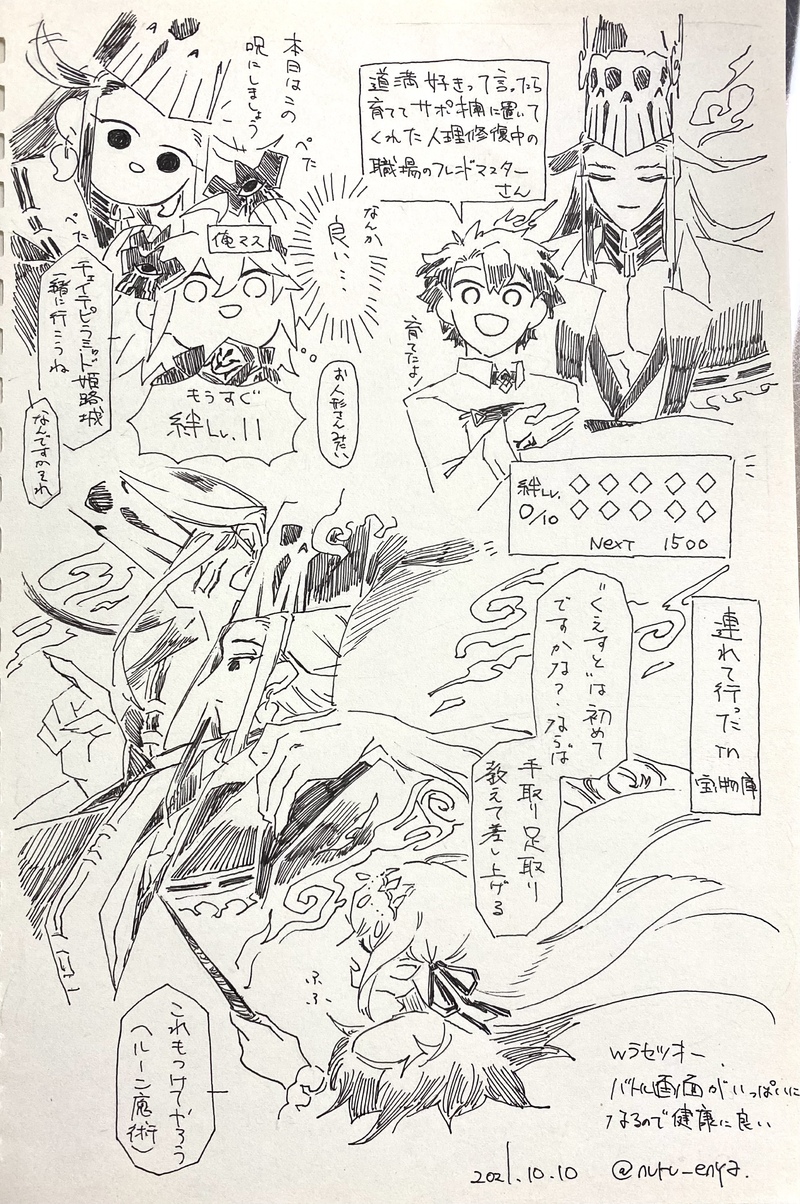 道満好きって言ったら
育ててサポ欄に置いて
くれた人理修復中の
職場のフレンドマスター
さん
育てたよ!
絆Lv.
0/10
NexT 1500
本日はこの
呪にしましょう
ぺた
ぺた
俺マス
なんか
良い…
お人形さんみたい
もうすぐ
絆Lv.11
チェイテピラミッド姫路城
一緒に行こうね
なんですかそれ
連れて行ったin
宝物庫
"くえすと"は初めて
ですかな?ならば
手取り足取り
教えて差し上げる
ふふ
これもつけてやろう
(ルーン魔術)
Wラセツオー
バトル画面がいっぱいに
なるので健康に良い
2021.10.10